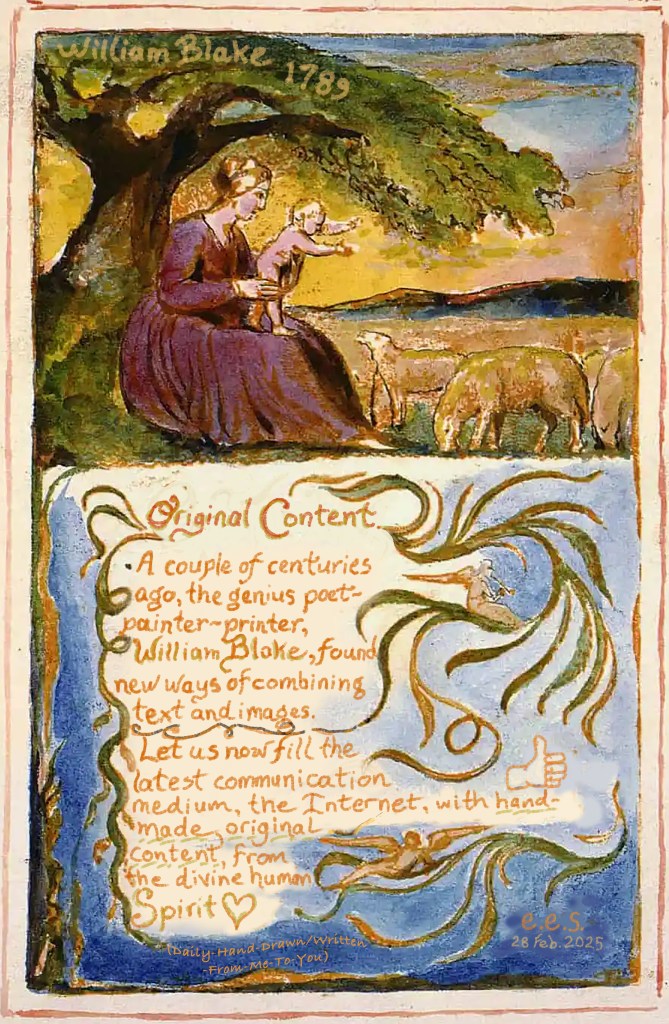 William Blake
1789
Original Content
A couple of centuries
ago, the genius poet-
painter-printer,
William Blake, found
new ways of combining
text and images.
Let us now fill the
latest communication
medium, the Internet, with hand-
made, original
content, from
the divine human
Spirit♡
(Daily-Hand-Drawn/Written
-From-Me-To-You)
e.e.s.
28 Feb. 2025